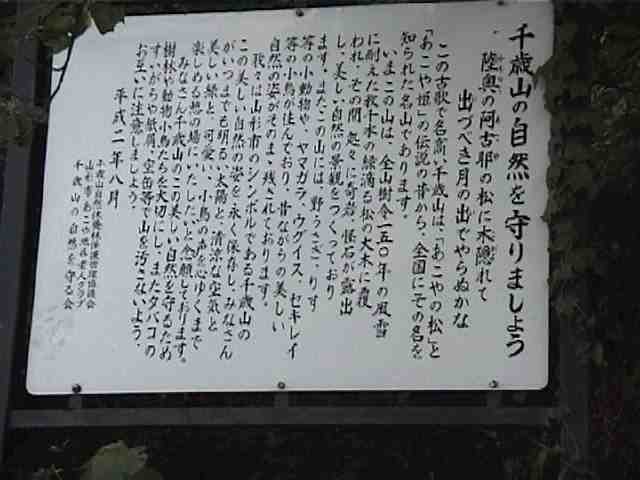 千歳山の自然を守りましょう
陸奥の阿古耶の松に木隠れて
出づべき月の出でやらぬかな
この古歌で名高い千歳山は、「あこやの松」と
「あこや姫」の伝説の昔から、全国にその名を
知られた名山であります。
いまこの山は、全山樹令一五〇年の風雪
に耐えた数千本の緑滴る松の大木に覆
われ、その間処々に奇岩、怪石が露出
し、美しい自然の景観をつくっており
ます。またこの山には、野うさぎ、りす
等の小動物や、ヤマガラ、ウグイス、セキレイ
等の小鳥が住んでおり、昔ながらの美しい
自然の姿がそのまゝ残されております。
我々は山形市のシンボルである千歳山の
この美しい自然の姿を永く保存し、みなさん
がいつまでも明るい太陽と、清涼な空気と
美しい緑と、可愛い小鳥の声を心ゆくまで
楽しめる憩の場にいたしたいと念願しております。
みなさん千歳山のこの美しい自然を守るため
樹林や動物小鳥たちを大切にし、またタバコの
すいがらや紙屑、空缶等で山を汚さないよう、
お互いに注意しましょう。
平成二年八月
千歳山自然休養林保護管理協議会
山形市あこや地区老人クラブ
千歳山の自然を守る会